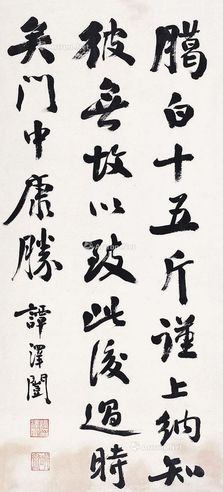 臈白十五斤謹上納知
彼無故以致此後過時
矣門中康勝
譚澤闓